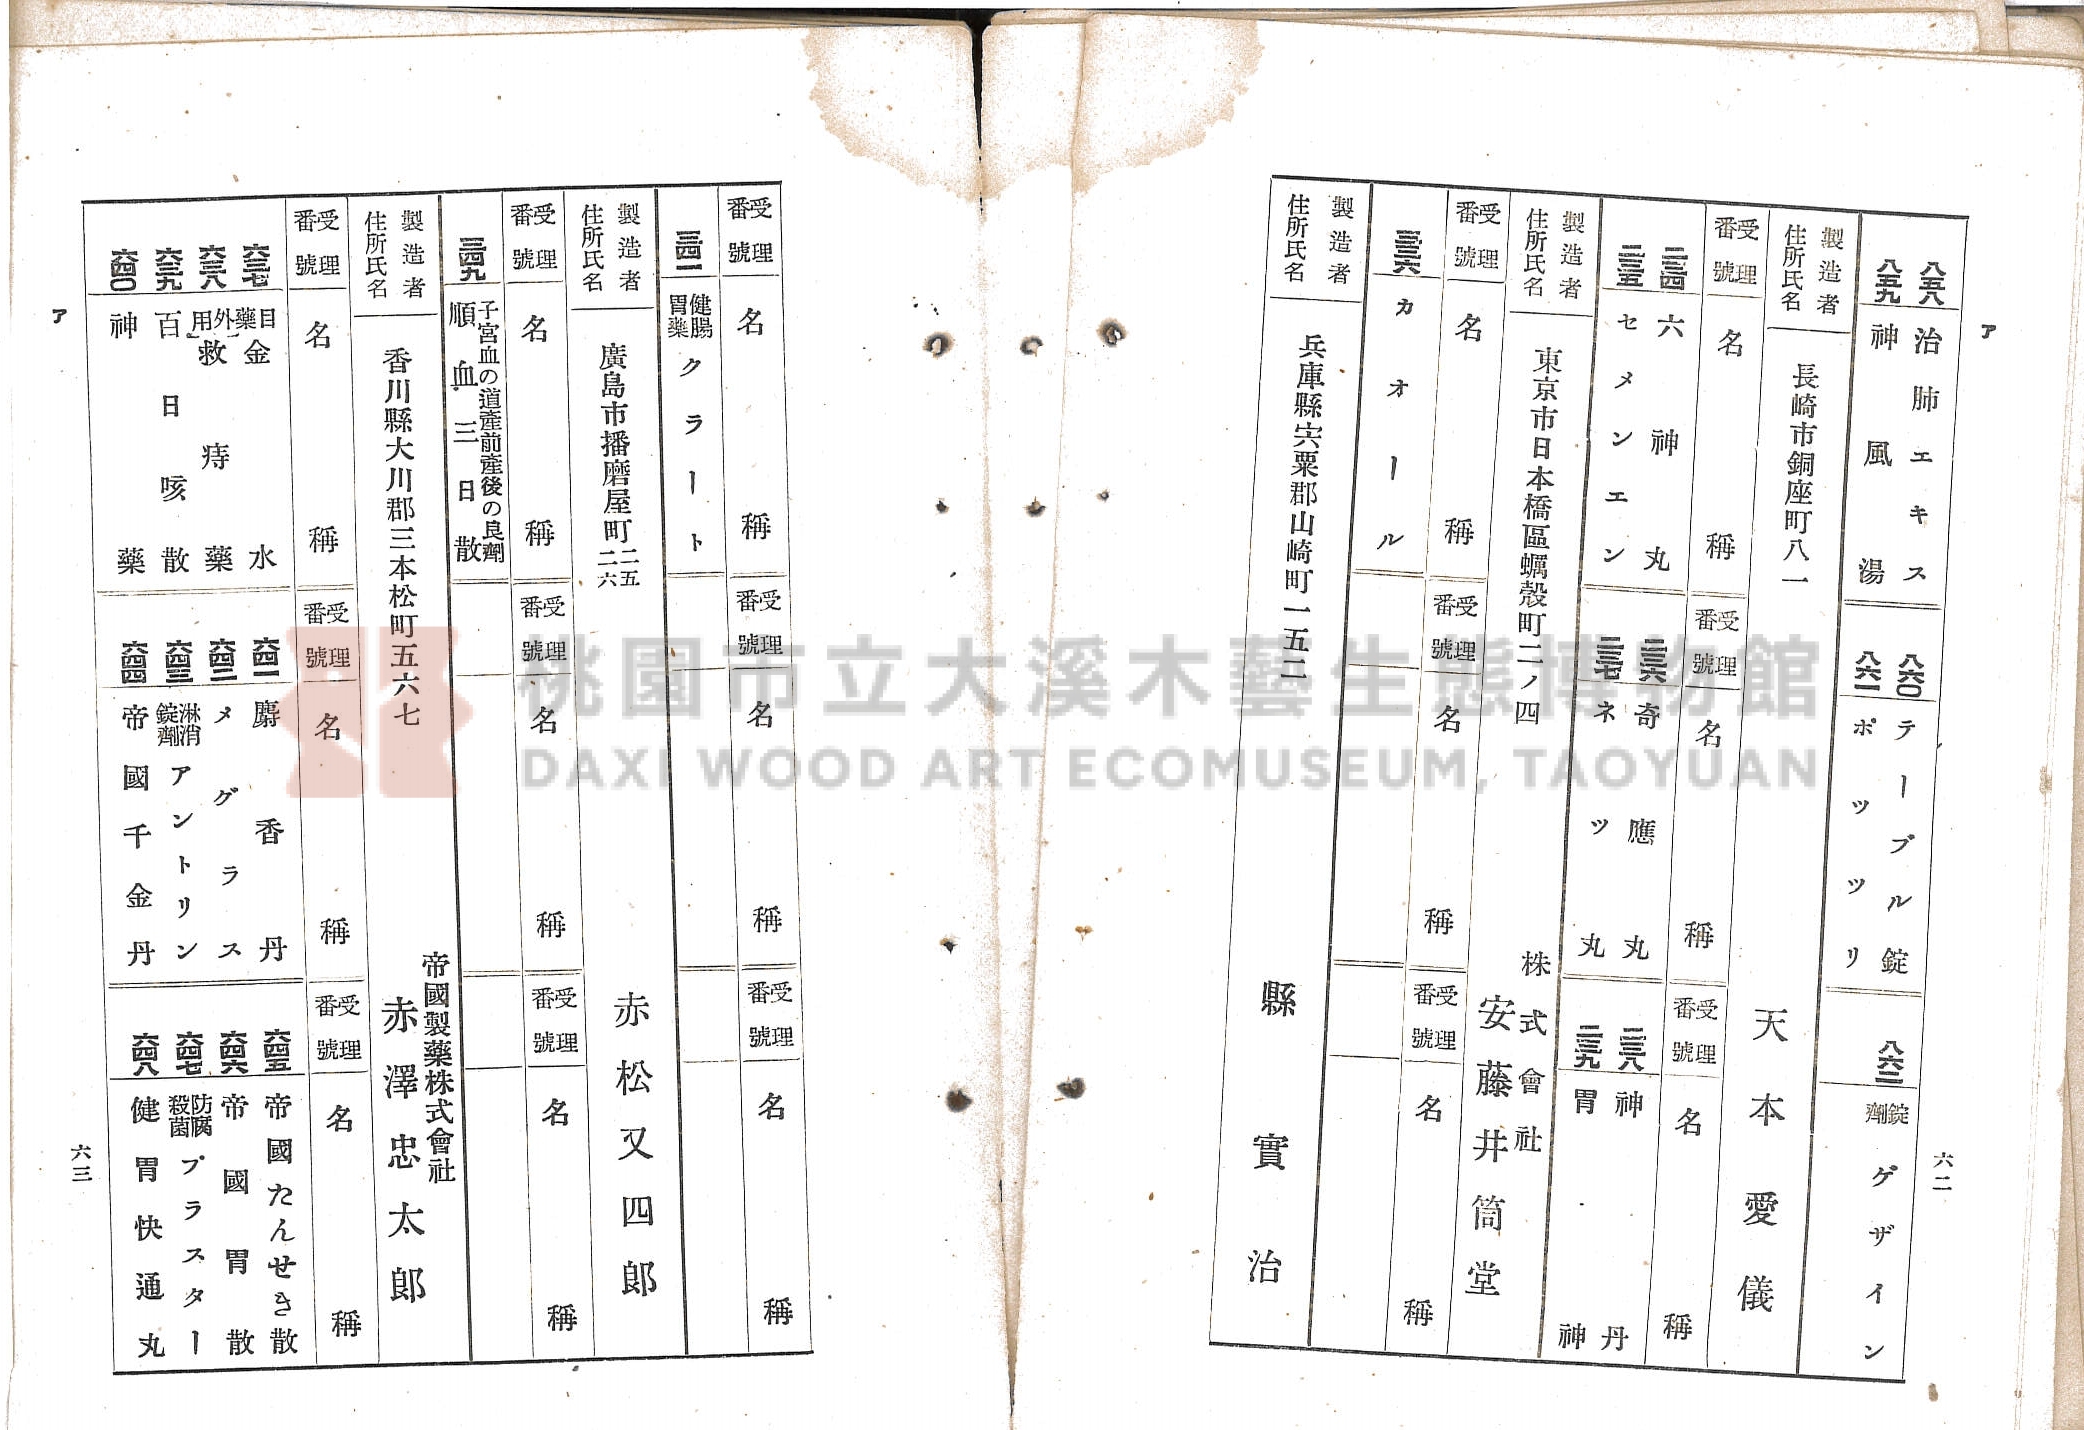 ア
八五八 治肺エキス
八五九 神風湯
八六〇 テーブル錠
八六一 ポツツリ
八六二 錠劑 ゲザイン
製造者住所氏名 長崎市銅座町八一 天本愛儀
受理番號 名稱 受理番號 名稱 受理番號 名稱
六神丸
セメンエン
奇應丸
ネツ丸
神丹
胃神
製造者住所氏名 東京市日本橋區蠣殼町二ノ四 株式會社 安藤井筒堂
受理番號 名稱 受理番號 名稱 受理番號 名稱
カオール
製造者住所氏名 兵庫縣宍粟郡山崎町一五二 縣實治
六二
受理番號 名稱 受理番號 名稱 受理番號 名稱
健腸胃藥 クラート
製造者住所氏名 廣島市播磨屋町二五二六 赤松又四郎
受理番號 名稱 受理番號 名稱 受理番號 名稱
子宮血の道產前產後の良劑 順血三日散
製造者住所氏名 香川縣大川郡三本松町五六七 帝國製藥株式會社 赤澤忠太郎
受理番號 名稱 受理番號 名稱 受理番號 名稱
六三七 目藥 金水
六三八 外用 救痔藥
六三九 百日咳散
六四〇 神藥
六四一 麝香丹
六四二 メグラス
六四三 淋消錠劑 アントリン
六四四 帝國千金丹
六四五 帝國たんせき散
六四六 帝國胃散
六四七 防腐殺菌 プラスター
六四八 健胃快通丸
ア
六三
桃園市立大溪木藝生態博物館
DAXI WOOD ART ECOMUSEUM, TAOYUAN